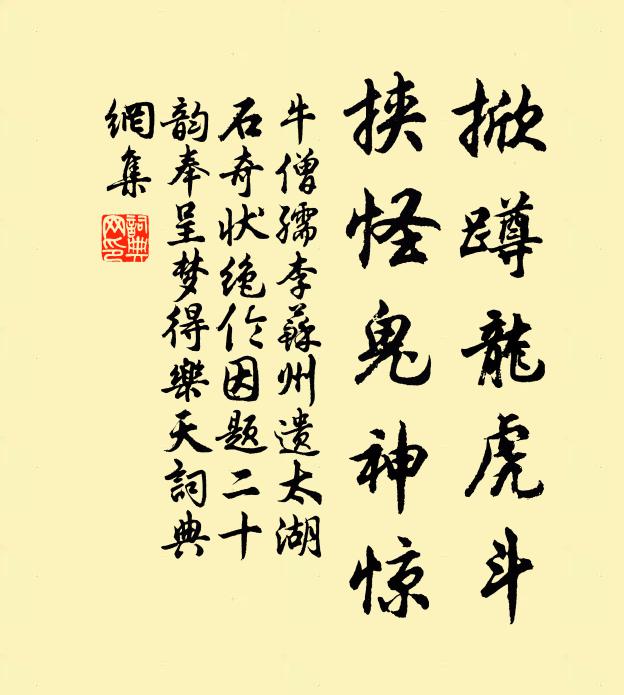 掀蹲龍虎斗
挟怪鬼神惊
牛僧孺李蘇州遗太湖
石奇状绝伦因题二十
韵奉呈梦得樂天詞典
網集
詞典
网印